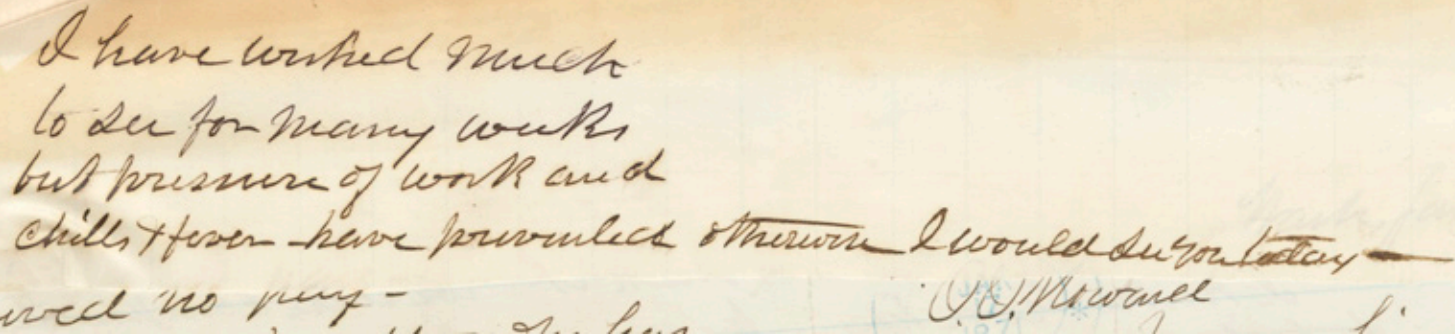 I have wished much
to see for many weeks
but pressure of work and
chills & fever have prevented otherwise I would see you today —
no pay -